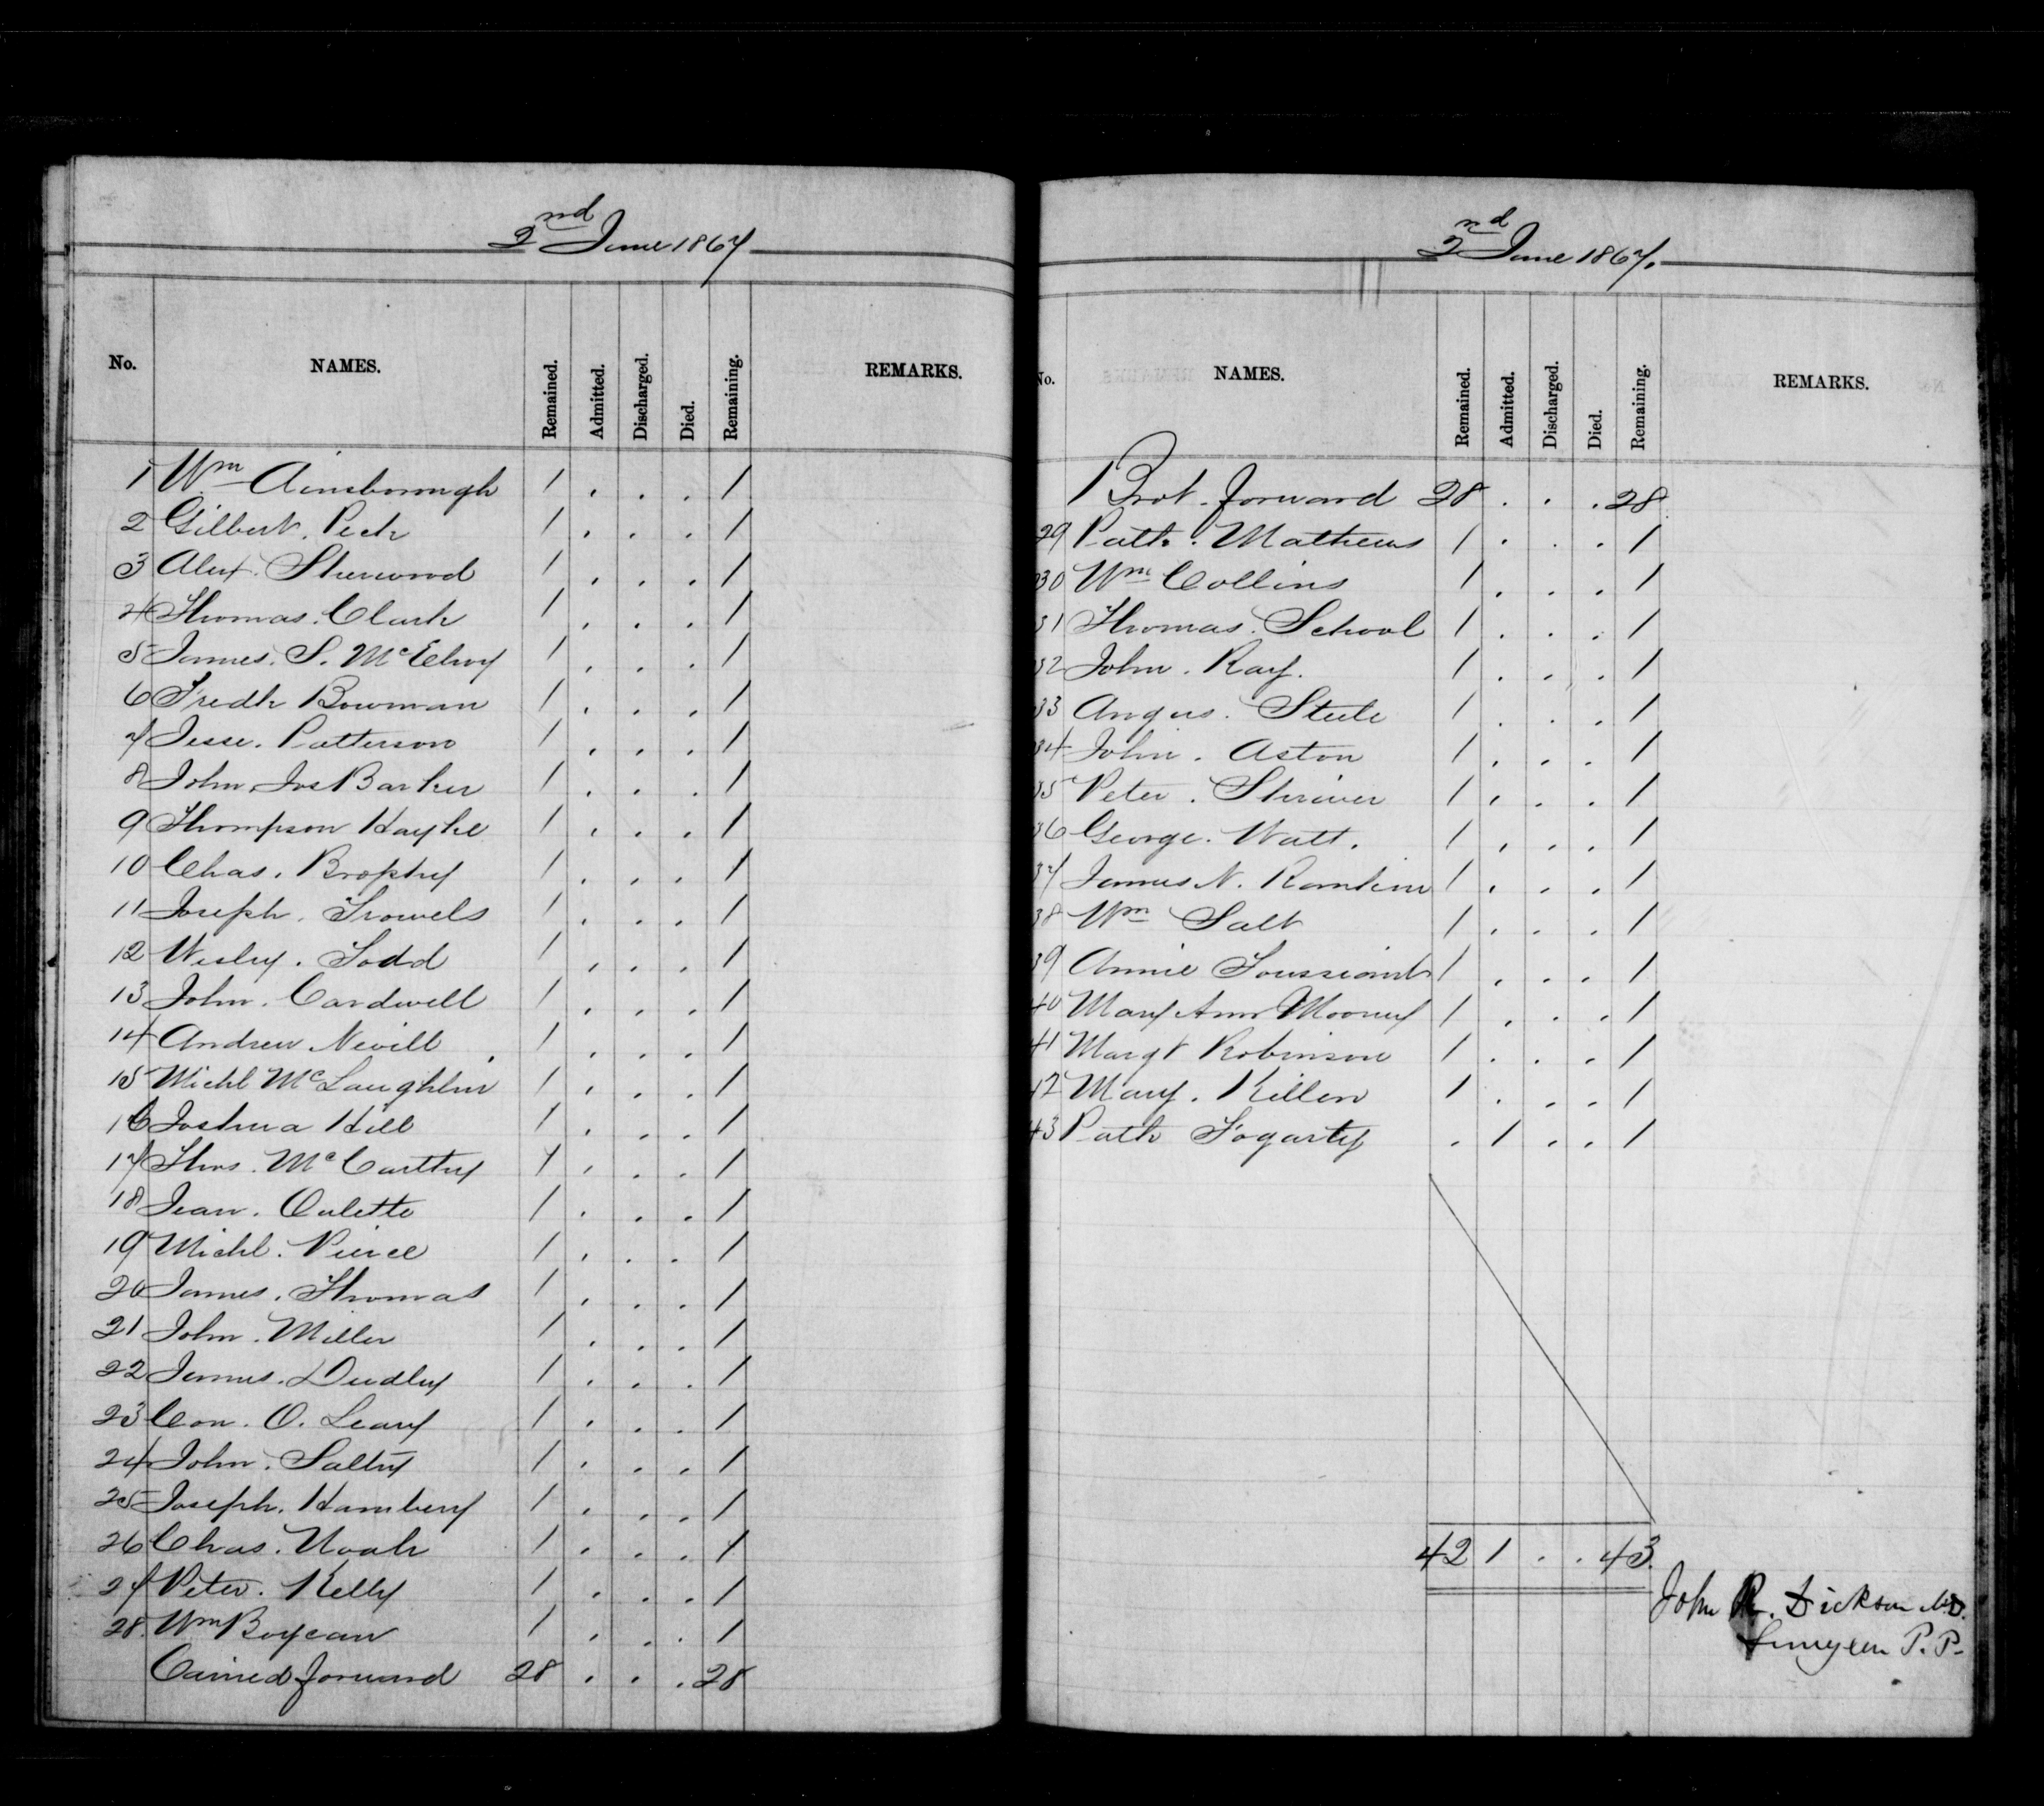 2nd June 1867
No. NAMES. Remained. Admitted. Discharged. Died. Remaining. REMARKS.
1 Wm Ainsborough 1 . . . 1
2 Gilbert. Peck 1 . . . 1
3 Alex. Sherwood 1 . . . 1
4 Thomas. Clark 1 . . . 1
5 James. S. McElroy 1 . . . 1
6 Fredk Bowman 1 . . . 1
7 Jesse. Patterson 1 . . . 1
8 John Jos Barker 1 . . . 1
9 Thompson 1 . . . 1
10 Chas. Brophy 1 . . . 1
11 Joseph. Trowels 1 . . . 1
12 Wesley. Todd 1 . . . 1
13 John. Cardwell 1 . . . 1
14 Andrew Nevill 1 . . . 1
15 Michl McLaughlin 1 . . . 1
16 Joshua Hill 1 . . . 1
17 Thos. McCarthy 1 . . . 1
18 Jean. Oulette 1 . . . 1
19 Michl. Pierce 1 . . . 1
20 James. Thomas 1 . . . 1
21 John. Miller 1 . . . 1
22 James. Dudley 1 . . . 1
23 Con. O. Leary 1 . . . 1
24 John. Saltry 1 . . . 1
25 Joseph. Hambery 1 . . . 1
26 Chas. Noah 1 . . . 1
27 Peter. Kelly 1 . . . 1
28. Wm Boyeau 1 . . . 1
Carried forward 28 . . . 28
2nd June 1867.
No. NAMES. Remained. Admitted. Discharged. Died. Remaining. REMARKS.
Brot. forward 28 . . . 28
29 Patk. Mathews 1 . . . 1
30 Wm Collins 1 . . . 1
31 Thomas. School 1 . . . 1
32 John. Ray. 1 . . . 1
33 Angus. Steele 1 . . . 1
34 John. Aston 1 . . . 1
35 Peter. Shriver 1 . . . 1
36 George. Watt. 1 . . . 1
37 James N. Rankin 1 . . . 1
38 Wm Salt 1 . . . 1
39 Annie Toussaint 1 . . . 1
40 Mary Ann Mooney 1 . . . 1
41 Margt Robinson 1 . . . 1
42 Mary. Killen 1 . . . 1
43 Patk Fogarty . 1 . . 1
42 1 . . 43.
John R. Dickson M.D.
Surgeon P. P.